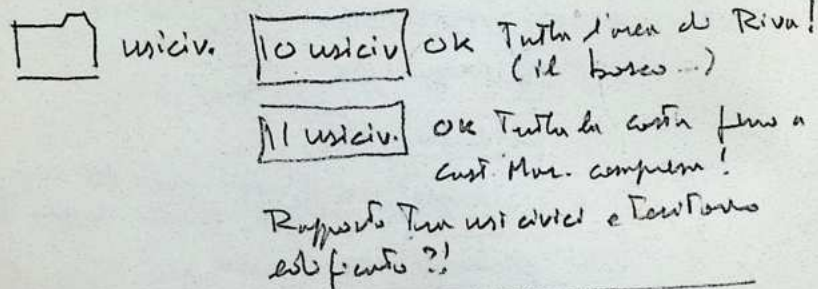 usiciv. 10 usiciv OK Tutta l'area di Riva!
(il bosco...)
11 usiciv. OK Tutta la costa fino a
Cast. Mar. compresa!
Rapporto Tra usi civici e Territorio
edificato ?!